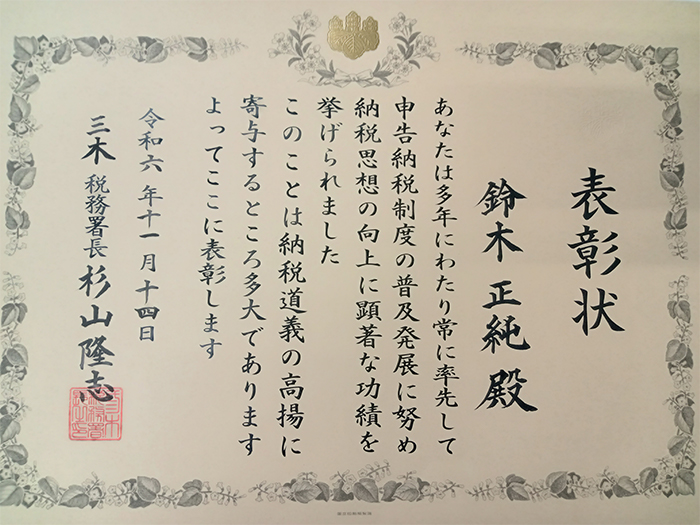 表彰状
鈴木正純殿
あなたは多年にわたり常に率先して
申告納税制度の普及発展に努め
納税思想の向上に顕著な功績を
挙げられました
このことは納税道義の高揚に
寄与するところ多大であります
よってここに表彰します
令和六年十一月十四日
三木税務署長杉山隆志